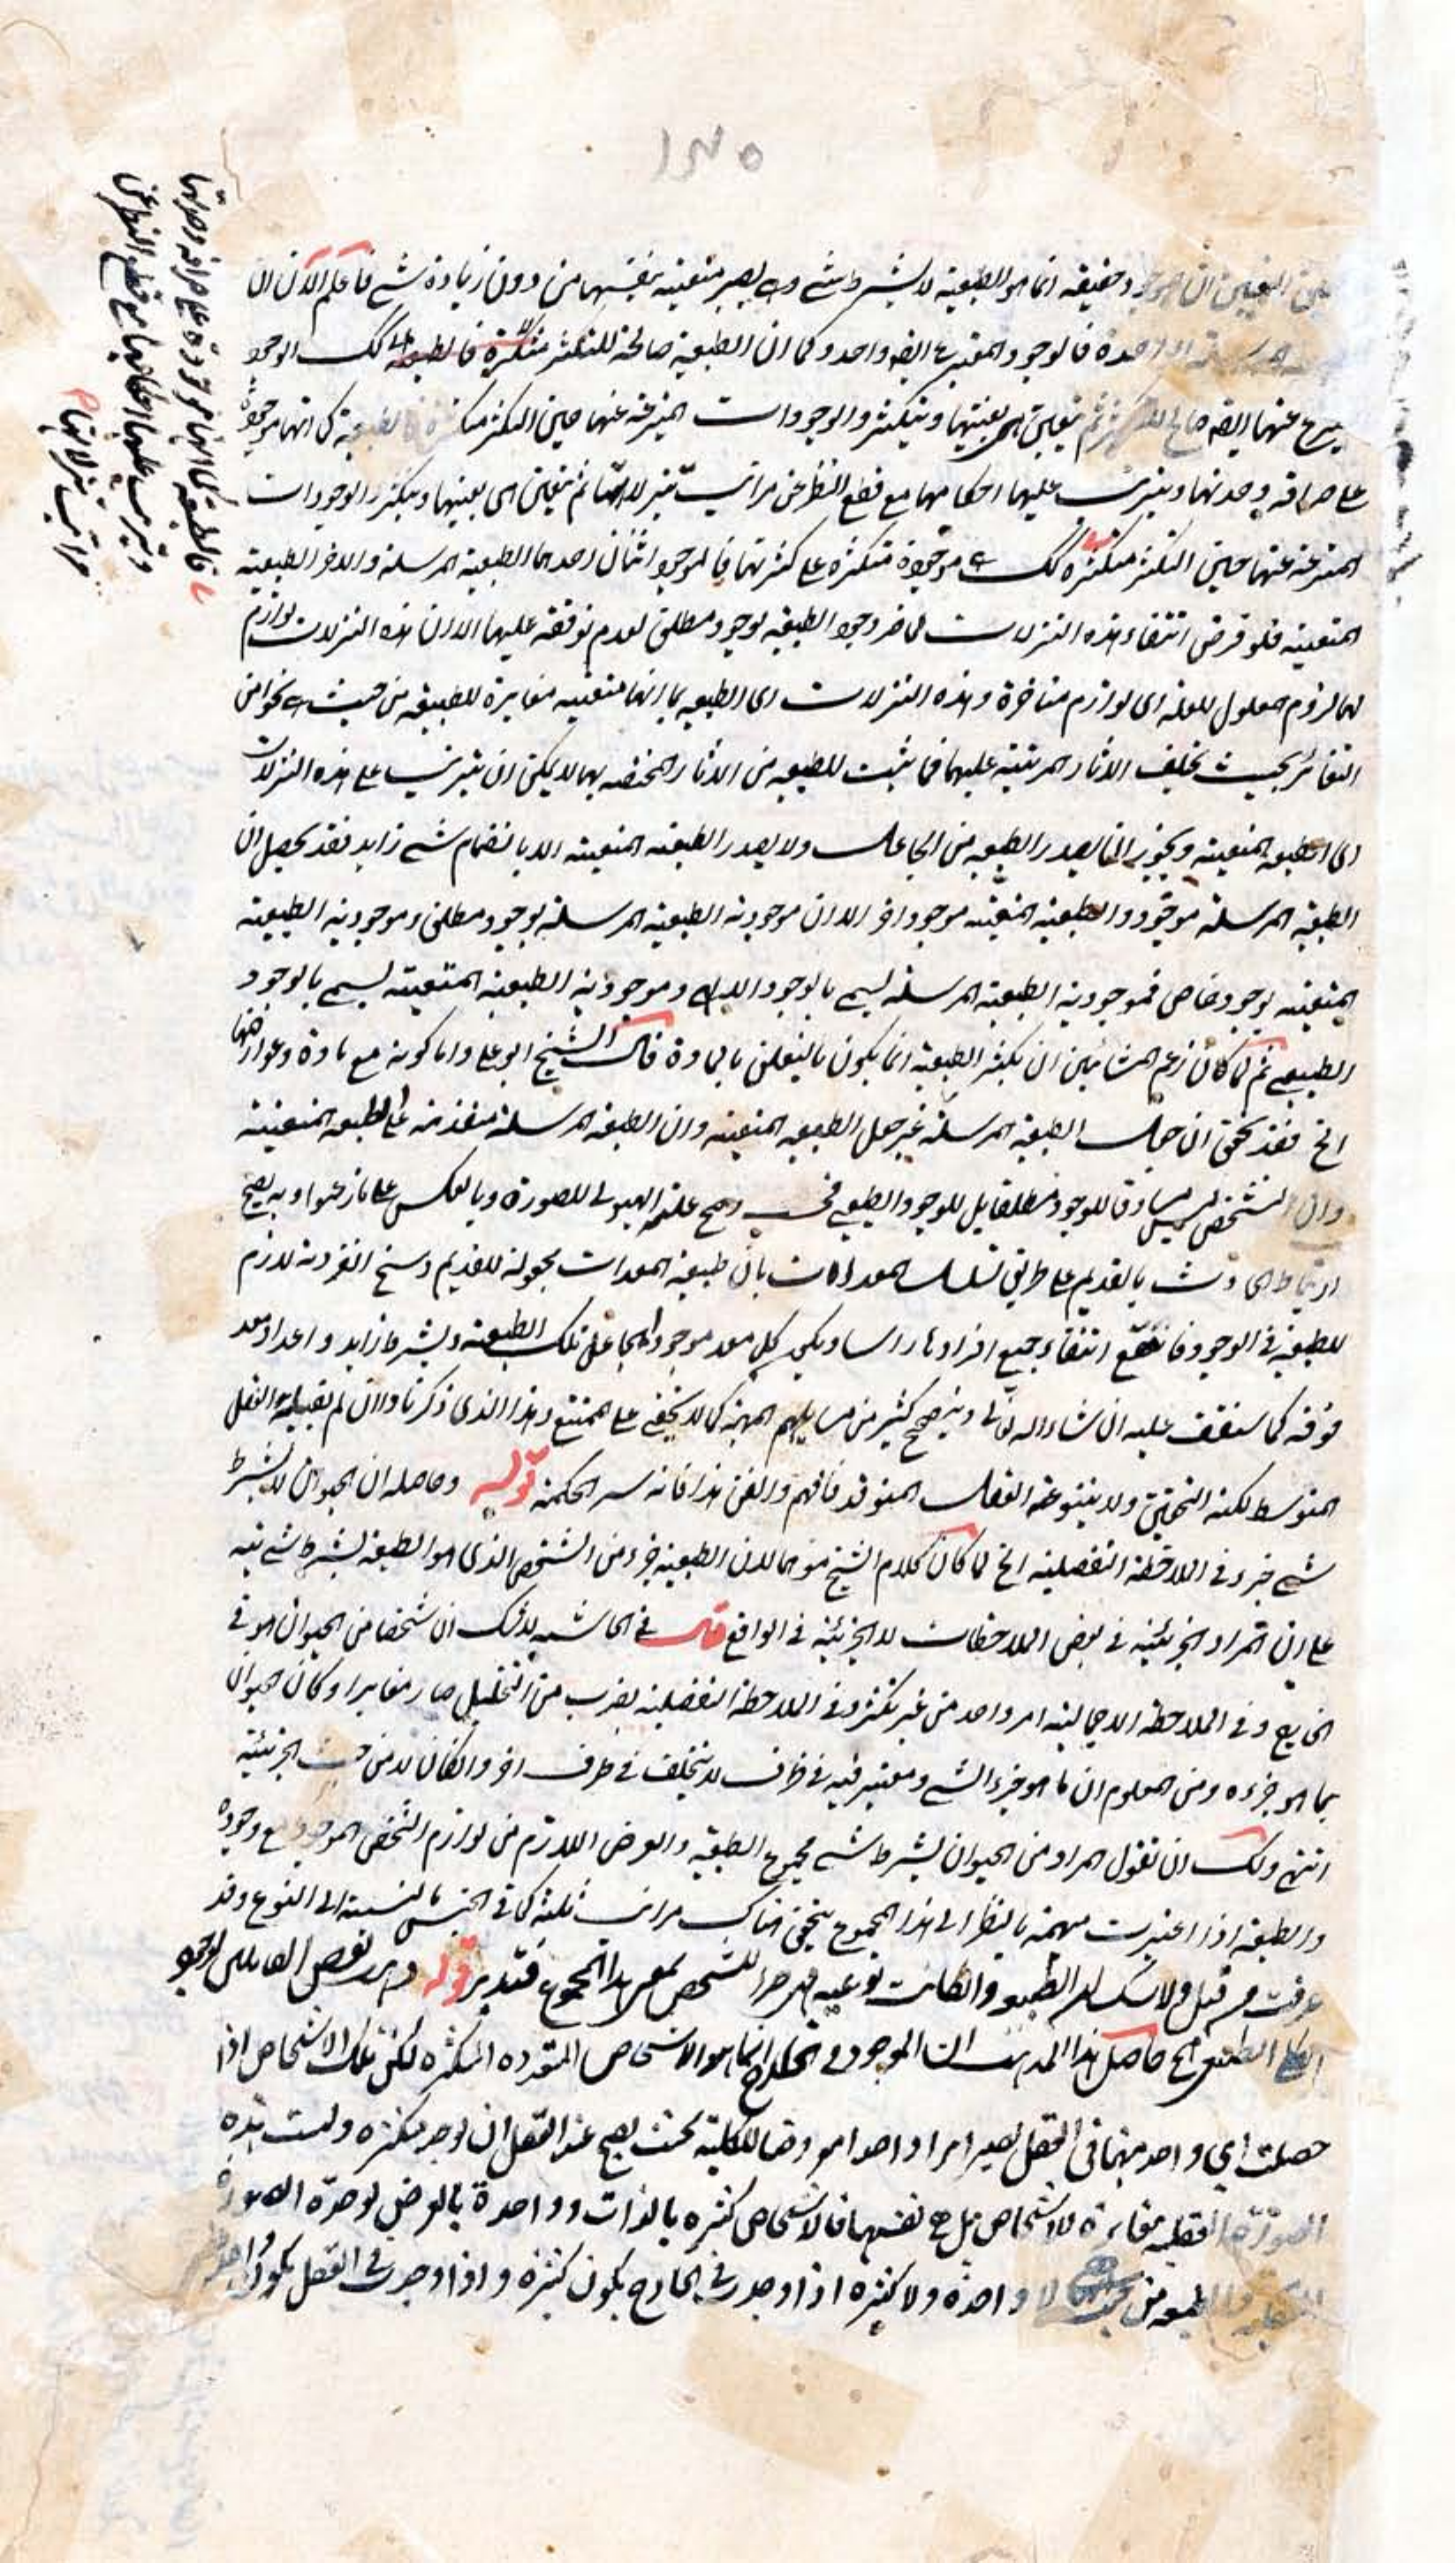 ١٣٥
التعين ان موجود حقيقة انما هو الطبيعة لا بشرط شے وهے يصير متعينة بنفسها من دون زيادة شے فاعلم الآن ان
الواحدة فالوجود المعتبر ع ايضه واحد وكما ان الطبيعة صالحة للتكثر متكثرة فالطبيعة كك الوجود
عنها ايضه صالح للتكثر ثم يتعين هى بعينها ويتكثر والوجودات المنتزعة عنها حين التكثر متكثرة فالطبيعة كى انها موجودة
على صرافة وحدتها ويترتب عليها احكامها مع قطع النظر عن مراتب تنزلاتها ثم يتعين هى بعينها ويتكثر الوجودات
المنتزعة عنها حين التكثر متكثرة كك هے موجودة متكثرة على كثرتها فالموجود اثنان احدهما الطبيعة المرسلة والاخر الطبيعة
المتعينة فلو فرض انتفاء هذه التنزلات لما ضر وجود الطبيعة بوجود مطلق لعدم توقفه عليها الا ان هذه التنزلات لوازم
لها لزوم المعلول للعلة اى لوازم متاخرة وهذه التنزلات اى الطبيعة بما انها متعينة مغايرة للطبيعة من حيث هے نحوا من
التغائر بحيث يختلف الاثار المرتبة عليها فما يثبت للطبيعة من الاثار المختصة بها لا يمكن ان يترتب على هذه التنزلات
اى الطبيعة المتعينة ويجوز ان يصدر الطبيعة من الجاعل ولا يصدر الطبيعة المتعينة الا بانضمام شے زايد فقد تحصل ان
الطبيعة المرسلة موجود والطبيعة المتعينة موجود اخر الا ان موجودية الطبيعة المرسلة بوجود مطلق وموجودية الطبيعة
المتعينة بوجود خاص فموجودية الطبيعة المرسلة يسمى بالوجود الالهى وموجودية الطبيعة المتعينة يسمى بالوجود
الطبيعى ثم لما كان زعم المشائين ان يكثر الطبيعة انما يكون بالتعلق بالمادة قال الشيخ ابو على واما كونه مع مادة وعوارضها
الخ فقد تحقق ان جعل الطبيعة المرسلة غير جعل الطبيعة المتعينة وان الطبيعة المرسلة متقدمة على الطبيعة المتعينة
وان التشخص ليس مساوقا للوجود مطلقا بل للوجود الطبيعى فحسب وصح علية الهيولى للصورة وبالعكس على ما زعموا وبه يصح
ارتباط الحادث بالقديم على طريق تسلسل المعدات بان طبيعة المعدات مجعولة للقديم وسنخ الفردية لازم
للطبيعة فى الوجود فامتنع انتفاء جميع افرادها راسا ويكون كل معد موجود الجاعل تلك الطبيعة وبشرط زايد واعداد معد
فوقه كما ستقف عليه ان شاء الله تعالى ويتضح كثير من مسايلهم المهمة كما لا يخفى على المتتبع وهذا الذى ذكرنا وان لم يقبله العقل
المتوسط لكنه التحقيق ولا ينبو عنه العقل المتوقد فافهم واتقن هذا فانه سر الحكمة قوله وحاصله ان الحيوان لا بشرط
شے جزء فى الملاحظة التفصيلية الخ لما كان كلام الشيخ موهما لان الطبيعة جزء من الشخص الذى هو الطبيعة بشرط شے نبه
على ان المراد الجزئية فى بعض الملاحظات لا الجزئية فى الواقع قال فى الحاشية لا شك ان شخصا من الحيوان هو فى
الخارج وفى الملاحظة الاجمالية امر واحد من غير تكثر وفى الملاحظة التفصيلية بضرب من التحليل صار مغايرا وكان حيوان
بما هو جزءه ومن المعلوم ان ما هو جزء الشے ومعتبر فيه فى ظرف لا يتخلف فى ظرف اخر وان كان لا من حيث الجزئية
انتهى ولك ان تقول المراد من الحيوان بشرط شے مجموع الطبيعة والعرض اللازم من لوازم الشخص الموجود مع وجوده
والطبيعة اذا اعتبرت مبهمة بالنظر الى هذا المجموع يتحقق هناك مراتب ثلثة كما فى الجنس بالنسبة الى النوع وقد
عرفت من قبل ولا شك ان الطبيعة وان كانت نوعية فهى جزء للشخص بمعنى هذا المجموع فتدبر قوله وبعض القائلين بوجود
الكلى الطبيعى الخ حاصل هذا المذهب ان الموجود فى الخارج انما هو الاشخاص المتعددة المتكثرة لكن تلك الاشخاص اذا
حصلت اى واحد منها فى العقل يصير امرا واحدا معروضا للكلية بحيث يصح عند العقل ان يوجد متكثرة وليست هذه
الصورة العقلية مغايرة للاشخاص بل هى نفسها فالاشخاص كثيرة بالذات وواحدة بالعرض لوحدة الصورة
والطبيعة من حيث هى لا واحدة ولا كثيرة اذا وجدت فى الخارج يكون كثيرة واذا وجدت فى العقل يكون واحدة
فالطبيعة كى انها موجودة على صرافة وحدتها
ويترتب عليها احكامها مع قطع النظر عن
مراتب تنزلاتها